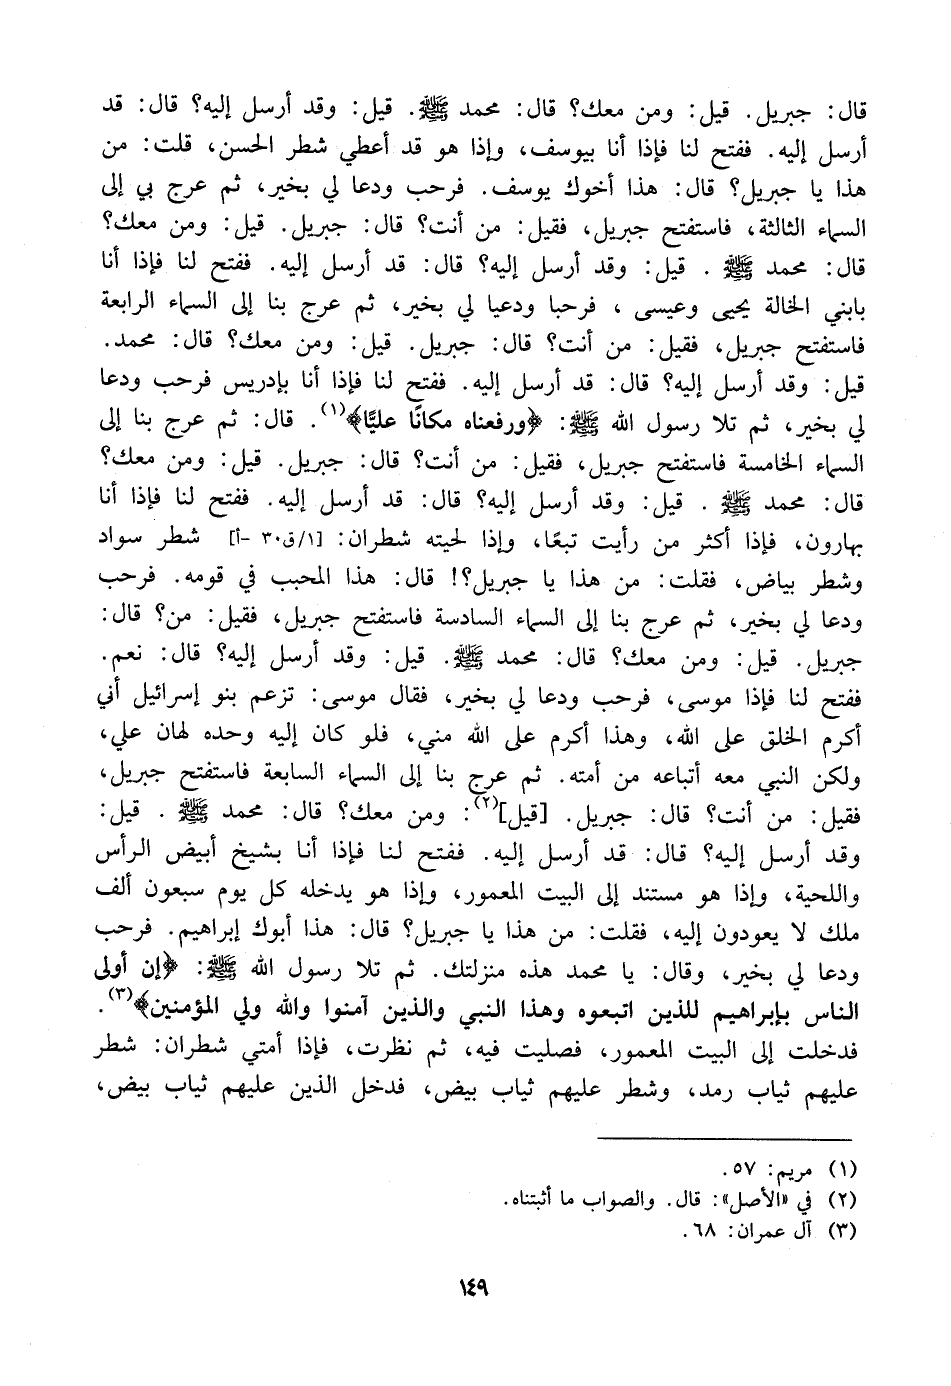 قال: جبريل. قيل: ومن معك؟ قال: محمد ﷺ. قيل: وقد أرسل إليه؟ قال: قد
أرسل إليه. ففتح لنا فإذا أنا بيوسف، وإذا هو قد أعطي شطر الحسن، قلت: من
هذا يا جبريل؟ قال: هذا أخوك يوسف. فرحب ودعا لي بخير، ثم عرج بي إلى
السماء الثالثة، فاستفتح جبريل، فقيل: من أنت؟ قال: جبريل. قيل: ومن معك؟
قال: محمد ﷺ . قيل: وقد أرسل إليه؟ قال: قد أرسل إليه. ففتح لنا فإذا أنا
بابني الخالة يحيى وعيسى ، فرحبا ودعيا لي بخير، ثم عرج بنا إلى السماء الرابعة
فاستفتح جبريل، فقيل: من أنت؟ قال: جبريل. قيل: ومن معك؟ قال: محمد.
قيل: وقد أرسل إليه؟ قال: قد أرسل إليه. ففتح لنا فإذا أنا بإدريس فرحب ودعا
لي بخير، ثم تلا رسول الله ﷺ: ﴿ورفعناه مكانًا عليًّا﴾(١). قال: ثم عرج بنا إلى
السماء الخامسة فاستفتح جبريل، فقيل: من أنت؟ قال: جبريل. قيل: ومن معك؟
قال: محمد ﷺ . قيل: وقد أرسل إليه؟ قال: قد أرسل إليه. ففتح لنا فإذا أنا
بهارون، فإذا أكثر من رأيت تبعًا، وإذا لحيته شطران: [١/ق٣٠ -أ] شطر سواد
وشطر بياض، فقلت: من هذا يا جبريل؟! قال: هذا المحبب في قومه. فرحب
ودعا لي بخير، ثم عرج بنا إلى السماء السادسة فاستفتح جبريل، فقيل: من؟ قال:
جبريل. قيل: ومن معك؟ قال: محمد ﷺ. قيل: وقد أرسل إليه؟ قال: نعم.
ففتح لنا فإذا موسى، فرحب ودعا لي بخير، فقال موسى: تزعم بنو إسرائيل أني
أكرم الخلق على الله، وهذا أكرم على الله مني، فلو كان إليه وحده لهان علي،
ولكن النبي معه أتباعه من أمته. ثم عرج بنا إلى السماء السابعة فاستفتح جبريل،
فقيل: من أنت؟ قال: جبريل. [قيل](٢): ومن معك؟ قال: محمد ﷺ . قيل:
وقد أرسل إليه؟ قال: قد أرسل إليه. ففتح لنا فإذا أنا بشيخ أبيض الرأس
واللحية، وإذا هو مستند إلى البيت المعمور، وإذا هو يدخله كل يوم سبعون ألف
ملك لا يعودون إليه، فقلت: من هذا يا جبريل؟ قال: هذا أبوك إبراهيم. فرحب
ودعا لي بخير، وقال: يا محمد هذه منزلتك. ثم تلا رسول الله ﷺ: ﴿إن أولى
الناس بإبراهيم للذين اتبعوه وهذا النبي والذين آمنوا والله ولي المؤمنين﴾(٣).
فدخلت إلى البيت المعمور، فصليت فيه، ثم نظرت، فإذا أمتي شطران: شطر
عليهم ثياب رمد، وشطر عليهم ثياب بيض، فدخل الذين عليهم ثياب بيض،
(١) مريم: ٥٧.
(٢) في «الأصل»: قال. والصواب ما أثبتناه.
(٣) آل عمران: ٦٨.
١٤٩